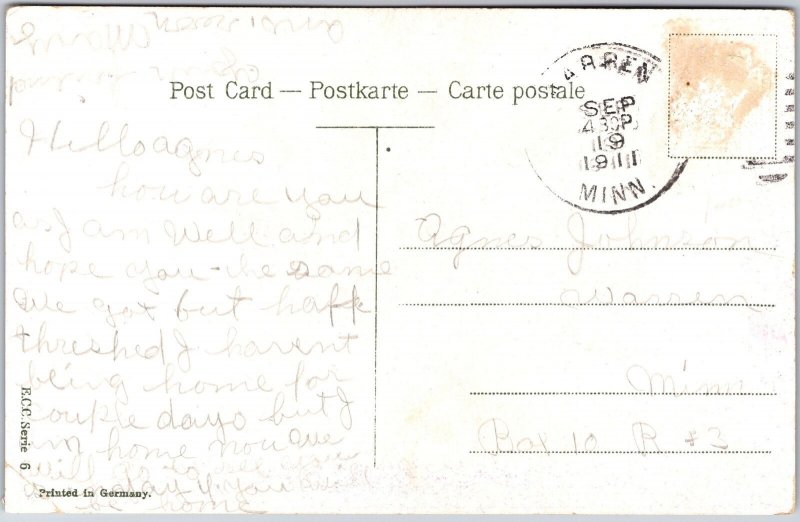 Post Card — Postkarte — Carte postale
WARREN
SEP
19
1911
MINN.
Hello agnes
how are you
as I am well and
hope you the same
we got but haff
threshed I havent
being home for
couple days but I
am home now we
will to see you
sunday if you
be home
ans. soon
Agnes Johnson
Warren
Minn
Box 10 R #2
E.C.C. Serie 6
Printed in Germany.